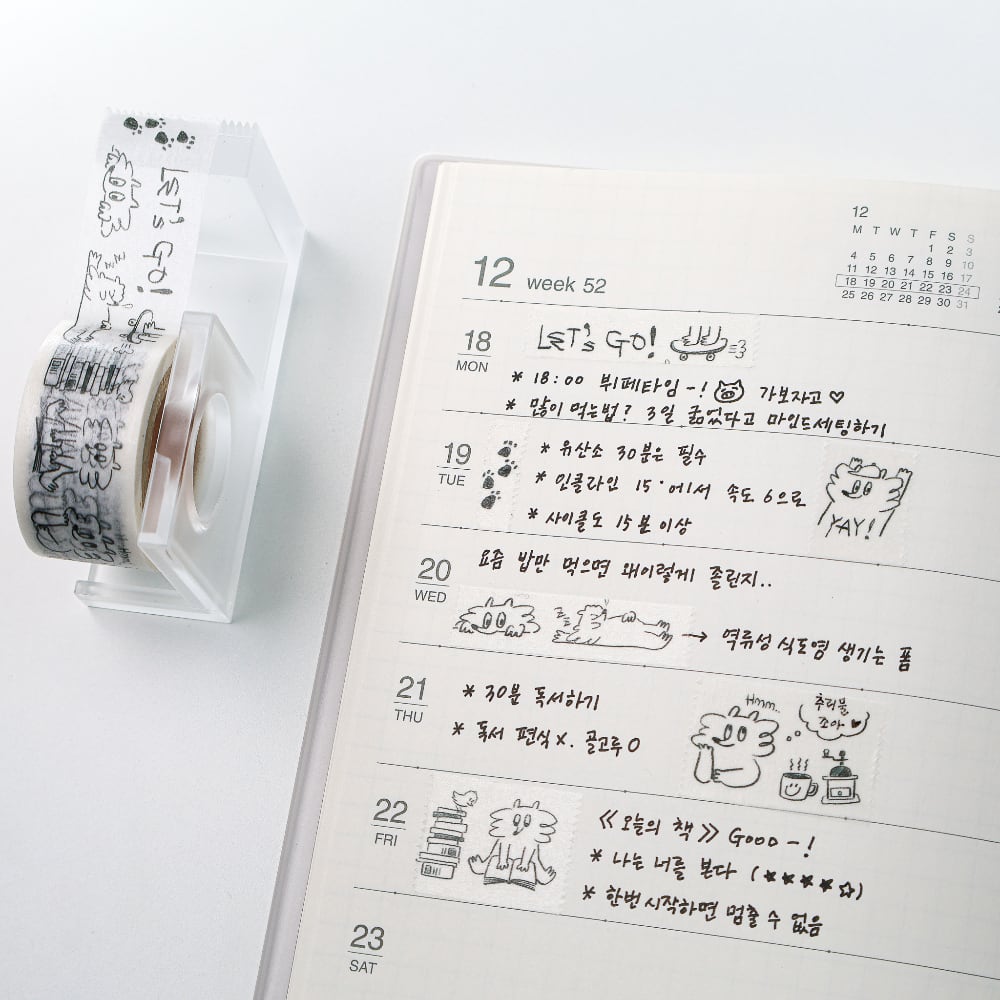 LET's GO!
12
M T W T F S S
1 2 3
4 5 6 7 8 9 10
11 12 13 14 15 16 17
18 19 20 21 22 23 24
25 26 27 28 29 30 31
12 week 52
18 MON
LET's GO!
* 18:00 뷔페타임-! 가보자고 ♡
* 많이 먹는법? 3일 굶었다고 마인드세팅하기
19 TUE
* 유산소 30분은 필수
* 인클라인 15°에서 속도 6으로
* 사이클도 15분 이상
YAY!
20 WED
요즘 밥만 먹으면 왜이렇게 졸린지..
→ 역류성 식도염 생기는 폼
21 THU
* 30분 독서하기
* 독서 편식 X. 골고루 O
Hmm..
추리물
조아 ♥
22 FRI
《오늘의 책》 Good-!
* 나는 너를 본다 (★★★★☆)
* 한번 시작하면 멈출 수 없음
23 SAT